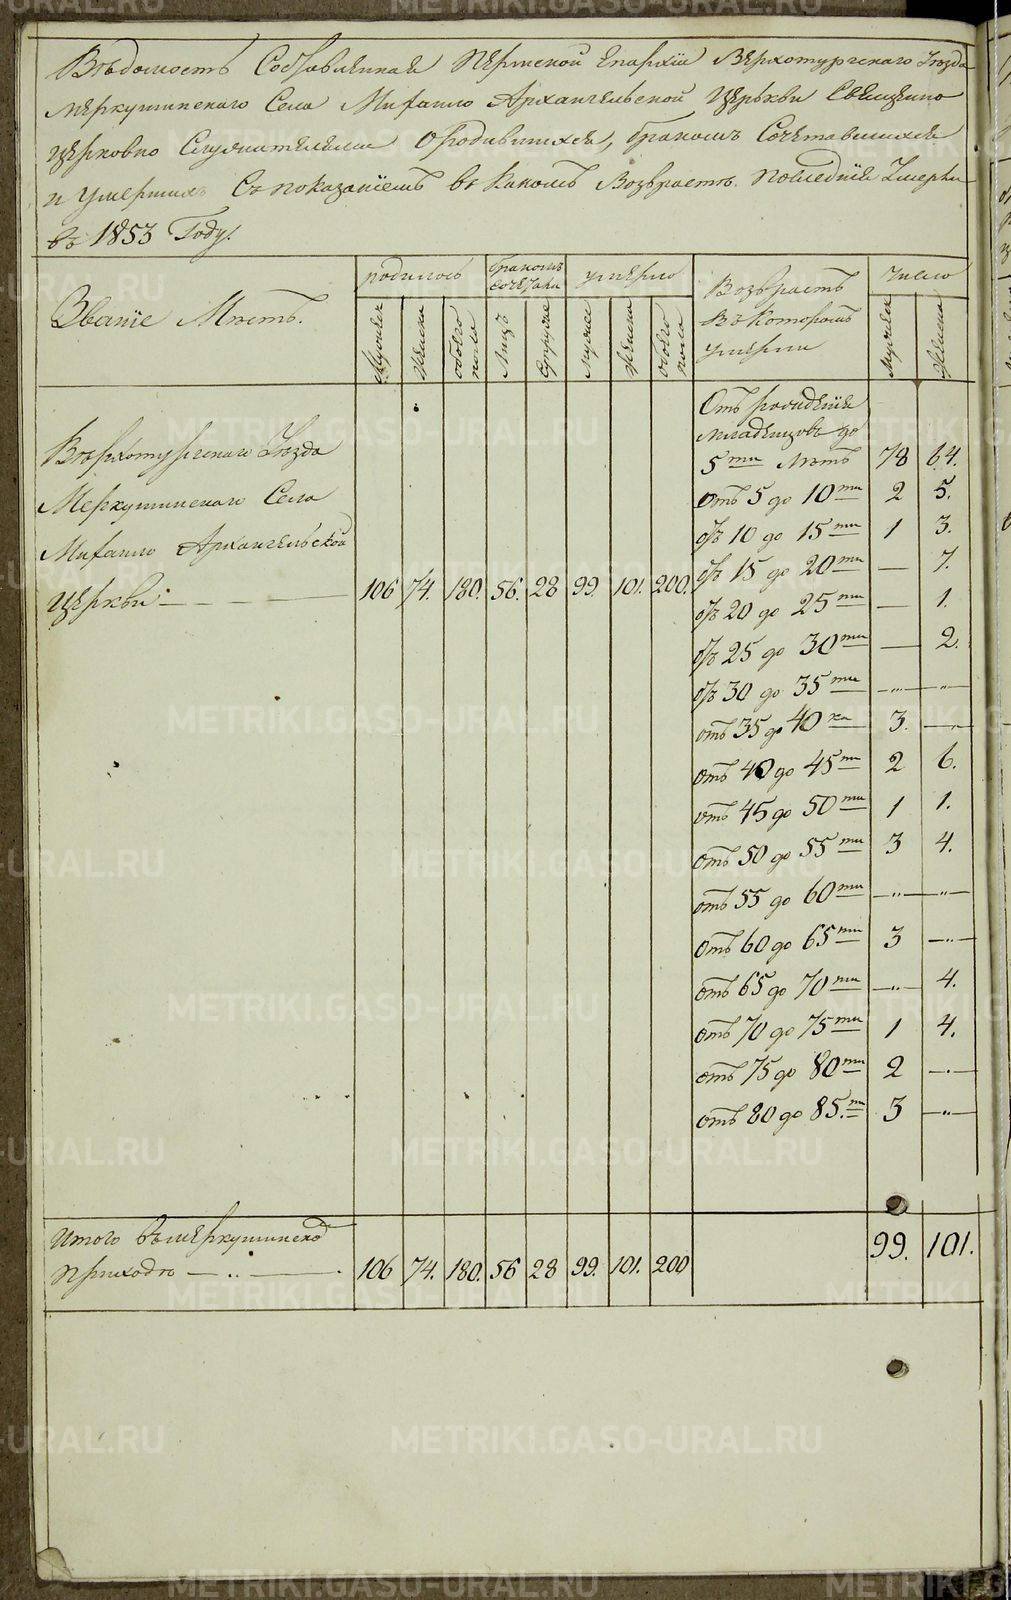 Вѣдомость Составленная Пермской Епархіи Верхотурскаго Уѣзда
Меркушинскаго Села Михаило Архангельской Церькви Священно
церковно Служителями О родившихся, бракомъ Сочетавшихся
и умершихъ Съ показаніемъ въ какомъ Возврастѣ Последніе Умерли
въ 1853 Году.
Званіе Мѣстъ.
родилось
бракомъ сочетали
умерло
Возврастъ
въ которомъ
умерли
число
Мужеск
Женска
обоего пола
Лицъ
Супруж
Мужес
Женска
обоего пола
Мужеск
Женска
Верхотурскаго Уѣзда
Меркушинскаго Села
Михаило Архангельской
Церкви 106 74. 180. 56. 28 99. 101. 200.
Отъ рожденія
младенцовъ до
5ти Лѣтъ 78 64.
отъ 5 до 10ти 2 5.
отъ 10 до 15ти 1 3.
отъ 15 до 20ти — 7.
отъ 20 до 25ти — 1.
отъ 25 до 30ти — 2.
отъ 30 до 35ти — —
отъ 35 до 40ка 3. —
отъ 40 до 45ти 2 6.
отъ 45 до 50ти 1 1.
отъ 50 до 55ти 3 4.
отъ 55 до 60ти — —
отъ 60 до 65ти 3 —
отъ 65 до 70ти — 4.
отъ 70 до 75ти 1 4.
отъ 75 до 80ти 2 —
отъ 80 до 85.ти 3 —
Итого въ Меркушинско
приходѣ 106 74. 180. 56 28 99. 101. 200 99. 101.
METRIKI.GASO-URAL.RU